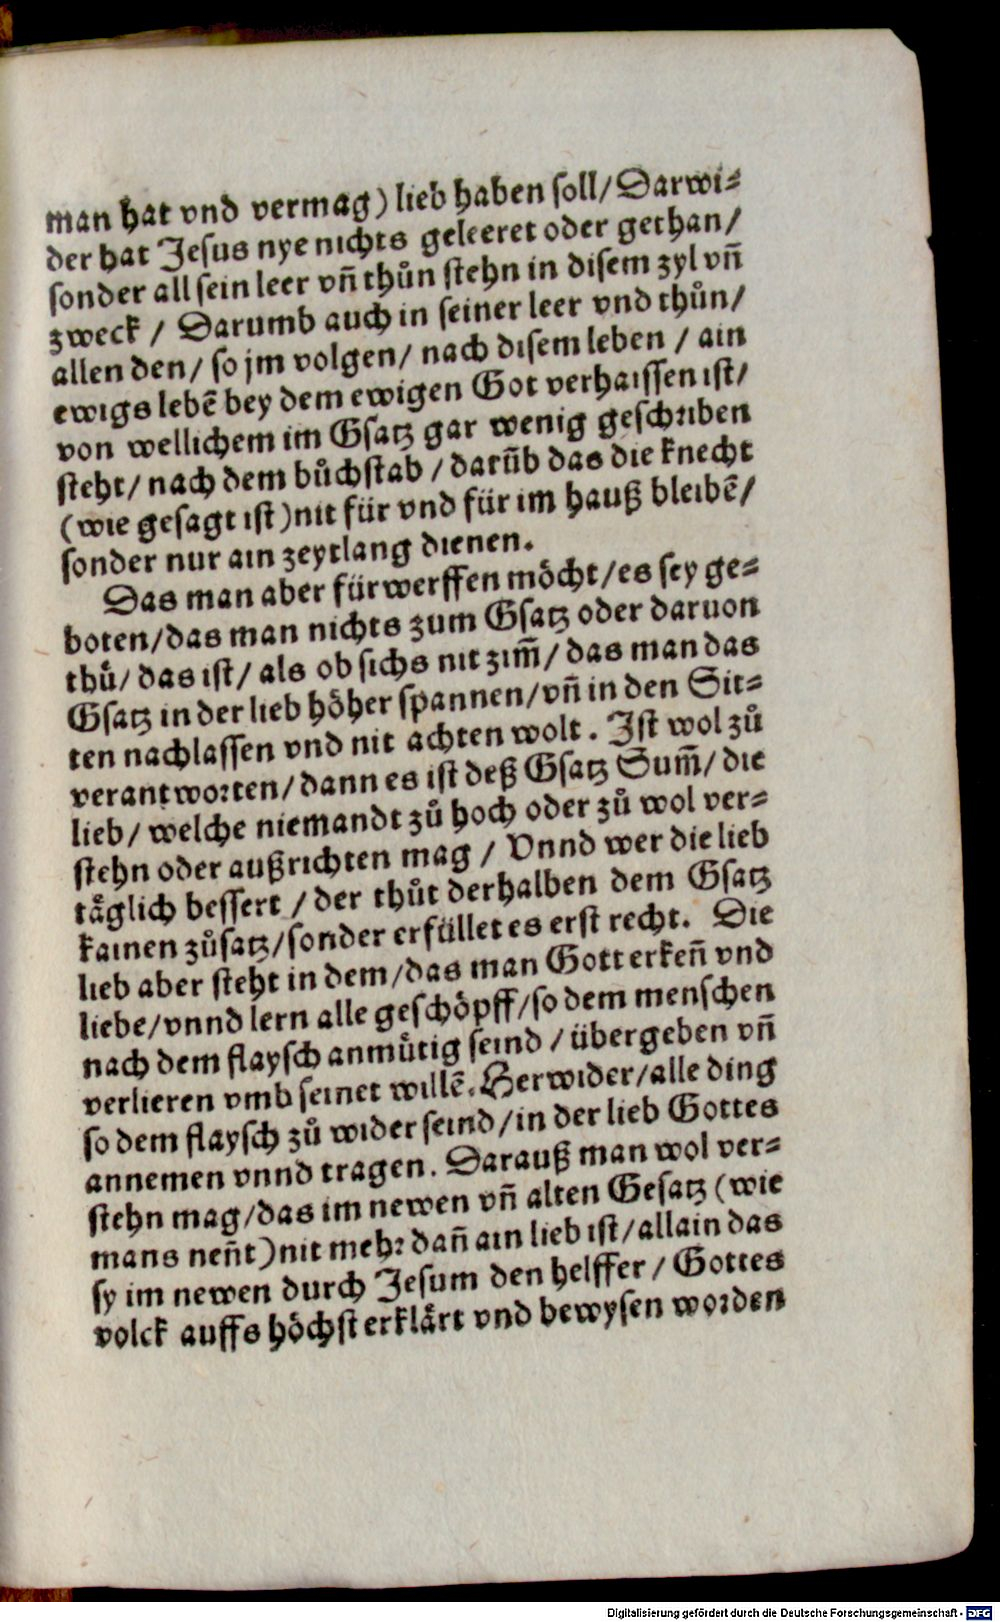 man hat vnd vermag) lieb haben soll/ Darwi⸗
der hat Jesus nye nichts geleeret oder gethan/
sonder all sein leer vn̄ thůn stehn in disem zyl vn̄
zweck / Darumb auch in seiner leer vnd thůn/
allen den/ so jm volgen/ nach disem leben / ain
ewigs lebē bey dem ewigen Got verhaissen ist/
von wellichem im Gsatz gar wenig geschriben
steht/ nach dem bůchstab / darūb das die knecht
(wie gesagt ist) nit für vnd für im hauß bleibē/
sonder nur ain zeytlang dienen.
Das man aber fürwerffen möcht/ es sey ge⸗
boten/ das man nichts zum Gsatz oder daruon
thů/ das ist/ als ob sichs nit zim̄/ das man das
Gsatz in der lieb höher spannen/ vn̄ in den Sit⸗
ten nachlassen vnd nit achten wolt. Ist wol zů
verantworten/ dann es ist deß Gsatz Sum̄/ die
lieb/ welche niemandt zů hoch oder zů wol ver⸗
stehn oder außrichten mag / Vnnd wer die lieb
täglich bessert / der thůt derhalben dem Gsatz
kainen zůsatz/ sonder erfüllet es erst recht. Die
lieb aber steht in dem/ das man Gott erken̄ vnd
liebe/ vnnd lern alle geschöpff/ so dem menschen
nach dem flaysch anmůtig seind / übergeben vn̄
verlieren vmb seinet willē. Herwider/ alle ding
so dem flaysch zů wider seind/ in der lieb Gottes
annemen vnnd tragen. Darauß man wol ver⸗
stehn mag/ das im newen vn̄ alten Gesatz (wie
mans nen̄t) nit mehr dan̄ ain lieb ist/ allain das
sy im newen durch Jesum den helffer / Gottes
volck auffs höchst erklärt vnd bewysen worden
Digitalisierung gefördert durch die Deutsche Forschungsgemeinschaft - DFG